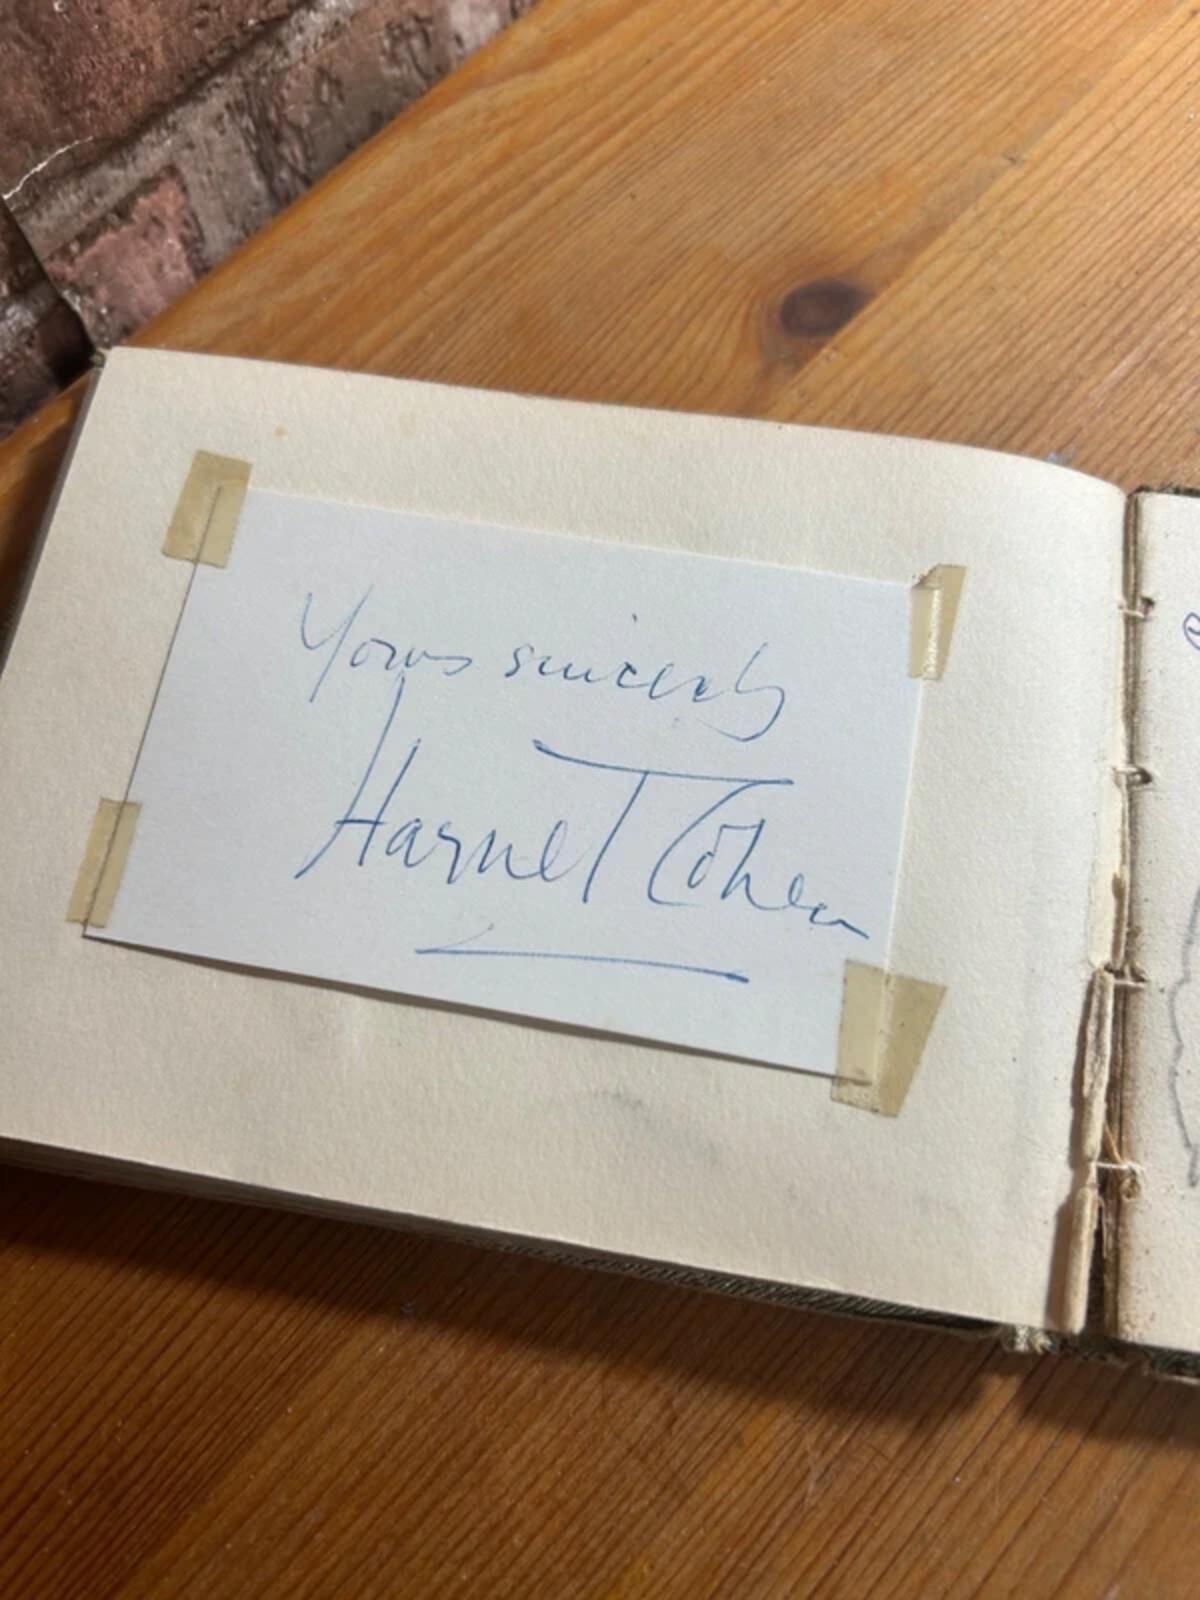 Yours sincerely
Harriet Cohen